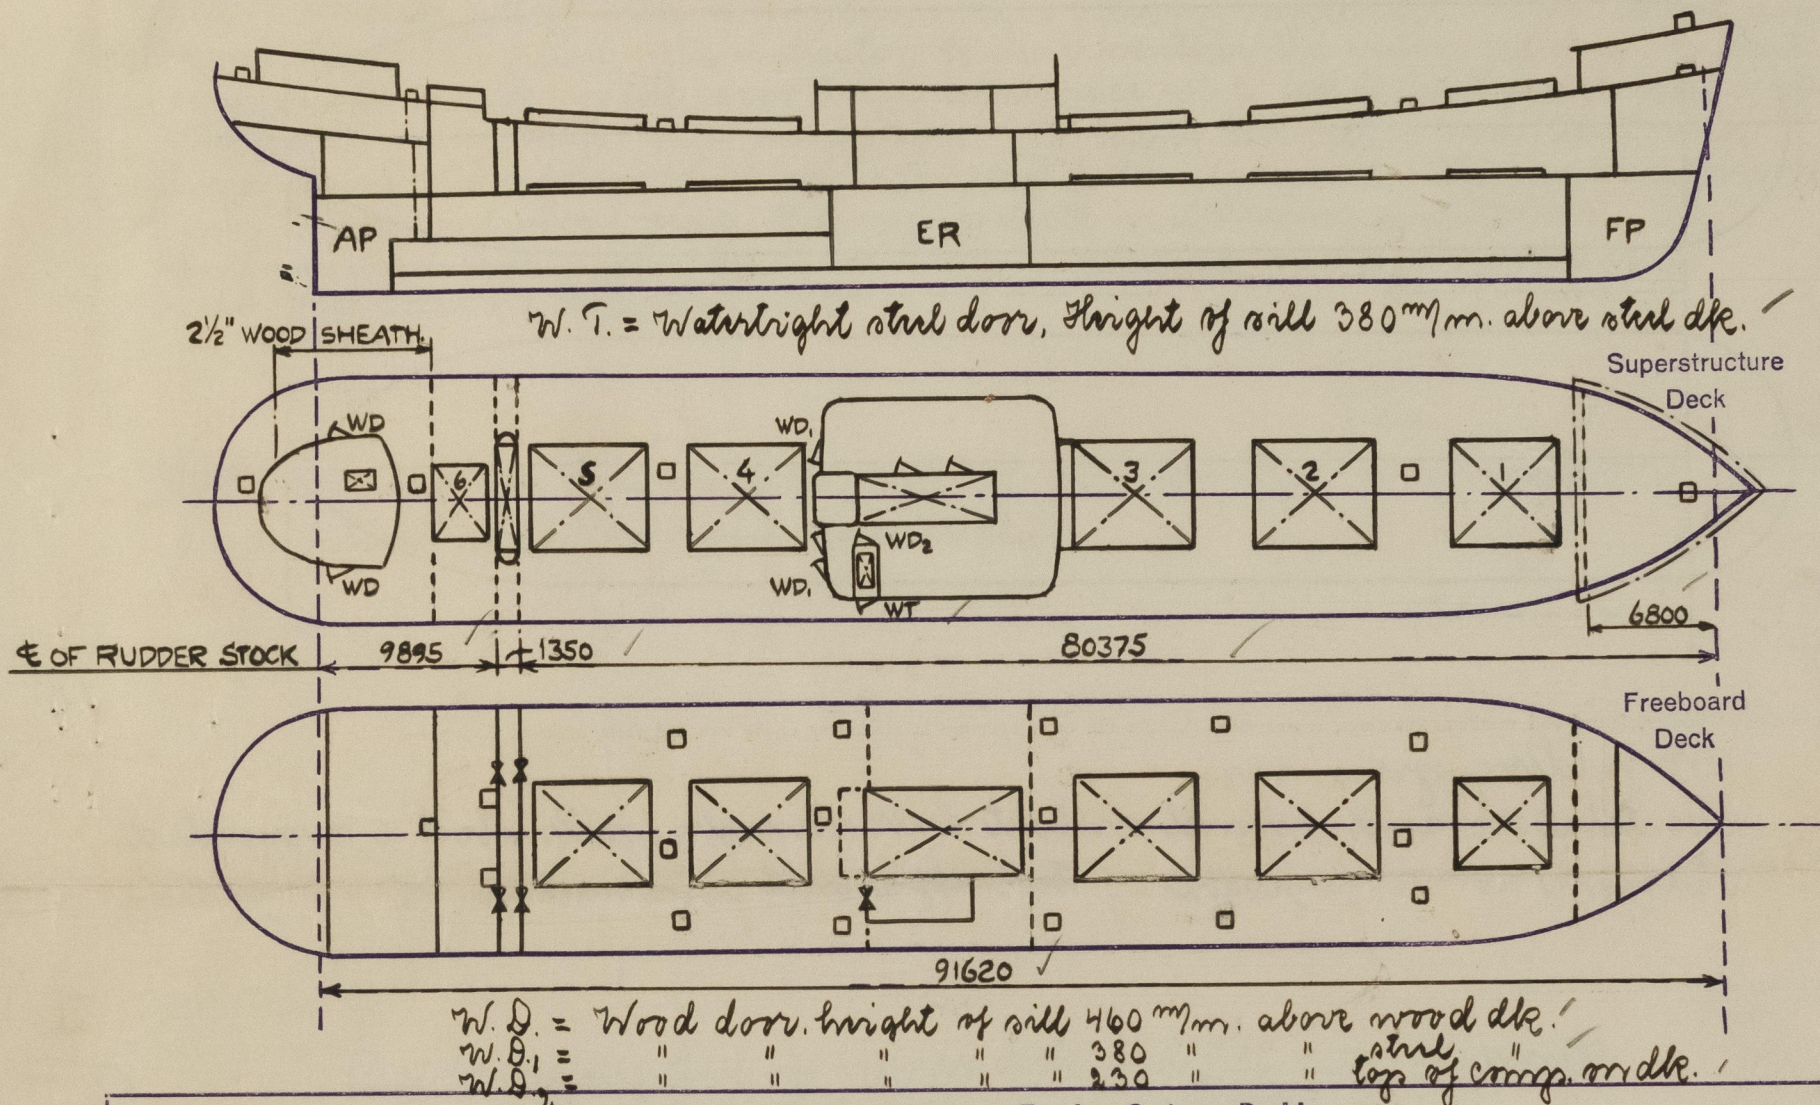 AP
ER
FP
W. T. = Watertight steel door, Height of sill 380 m/m. above steel dk.
2½" WOOD SHEATH.
Superstructure
Deck
WD
WD
WD₁
WD₁
WD₂
WT
6 5 4 3 2 1
6800
℄ OF RUDDER STOCK 9895 1350 80375
Freeboard
Deck
91620
W. D. = Wood door. height of sill 460 m/m. above wood dk.
W. D.₁ = " " " " " 380 " " steel "
W. D.₂ = " " " " " 230 " " tops of comgs. on dk.